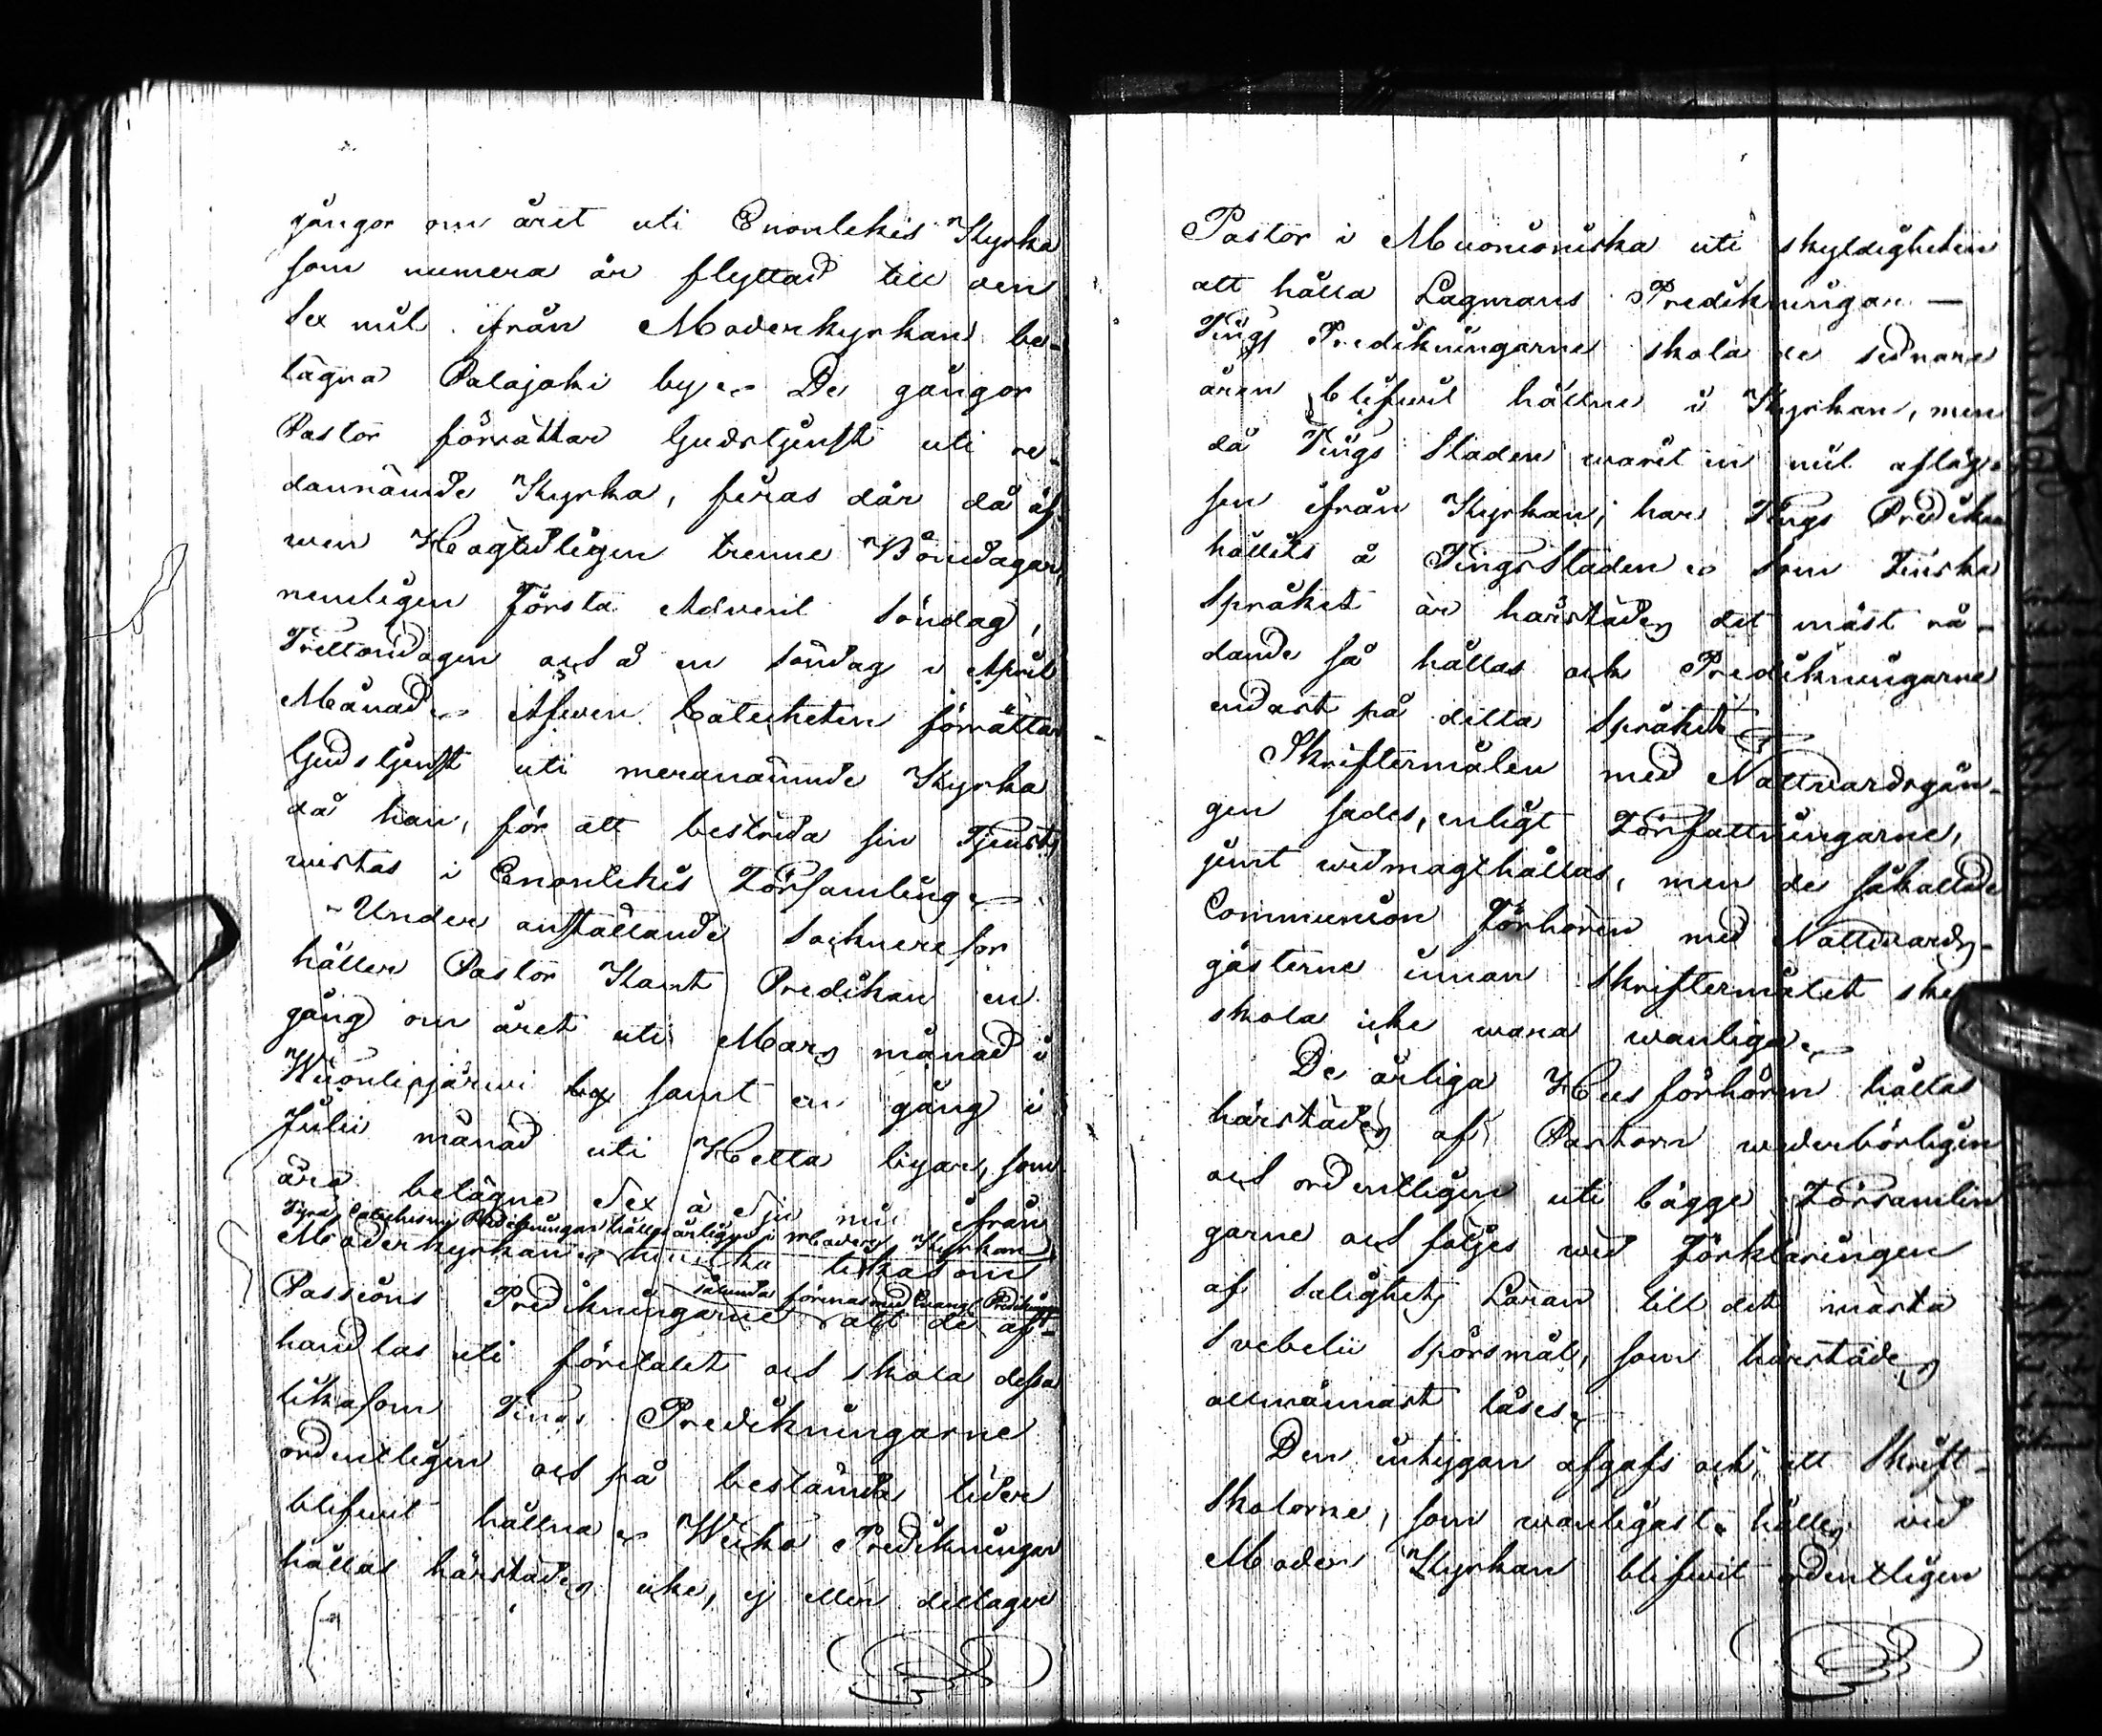 gångor om året uti Enontekis Kyrka
som numera är flyttad till den
Sex mil ifrån Moderkyrkan be-
lägna Palajoki by. De gångor
Pastor förrättar Gudstjenst uti re-
dannämde Kyrka, firas där då äf-
wen Högtidligen trenne Bönedagar,
nemligen Första Advent Söndag,
Trettondagen och å en Söndag i April
Månad. Äfwen Catecheten förrättar
Gudstjenst uti meranämnde Kyrka
då han, för att bestrida sin Tjenst,
wistas i Enontekis Församling
Under anställande Sockneresor
håller Pastor Samt Predikan en
gång om året uti Mars månad i
Wuontisjärwi by samt en gång i
Julii månad uti Hetta byar, som
äro belägne Sex à Sju mil ifrån
Fyra Catechismi Predikningar hållas årligen i Moder Kyrkan
Moderkyrkan likasom
såunda förenas med Evangl. Predikningar
Passions Predikningarne att de af-
handlas uti företalet och skola dessa
likasom Tings Predikningarne
ordentligen och på bestämda tider
blifwit hållna. Weeko Predikningar
hållas härstädes icke, ej eller deltager
Pastor i Muonioniska uti skyldigheten
att hålla Lagmans Predikningar —
Tings Predikningarne skola de sednare
åren blifwit hållne i Kyrkan, men
då Tings Staden warit en mil afläg-
sen ifrån Kyrkan, har Tings Predikan
hållits å TingsStaden. Som Finska
Språket är härstädes det mäst rå-
dande så hållas ock Predikningarne
endast på detta Språket
Skriftermålen med Nattwardsgån-
gen sades, enligt Författningarne,
jemt widmagthållas, men de såkallade
Communion Förhören med Nattwards-
gästerne innan Skriftermålet sker
skola icke wara wanliga.
De årliga Husförhören hållas
härstädes af Pastorn wederbörligen
och ordentligen uti bägge Församlin
garne och följes wid Förklaringen
af Salighets Läran till det mästa
Svebelii Spörsmål, som härstädes
allmännast läses.
Den intygan afgafs ock, att Skrift-
Skolorne, som wanligast hålles wid
Moder Kyrkan blifwit ordentligen